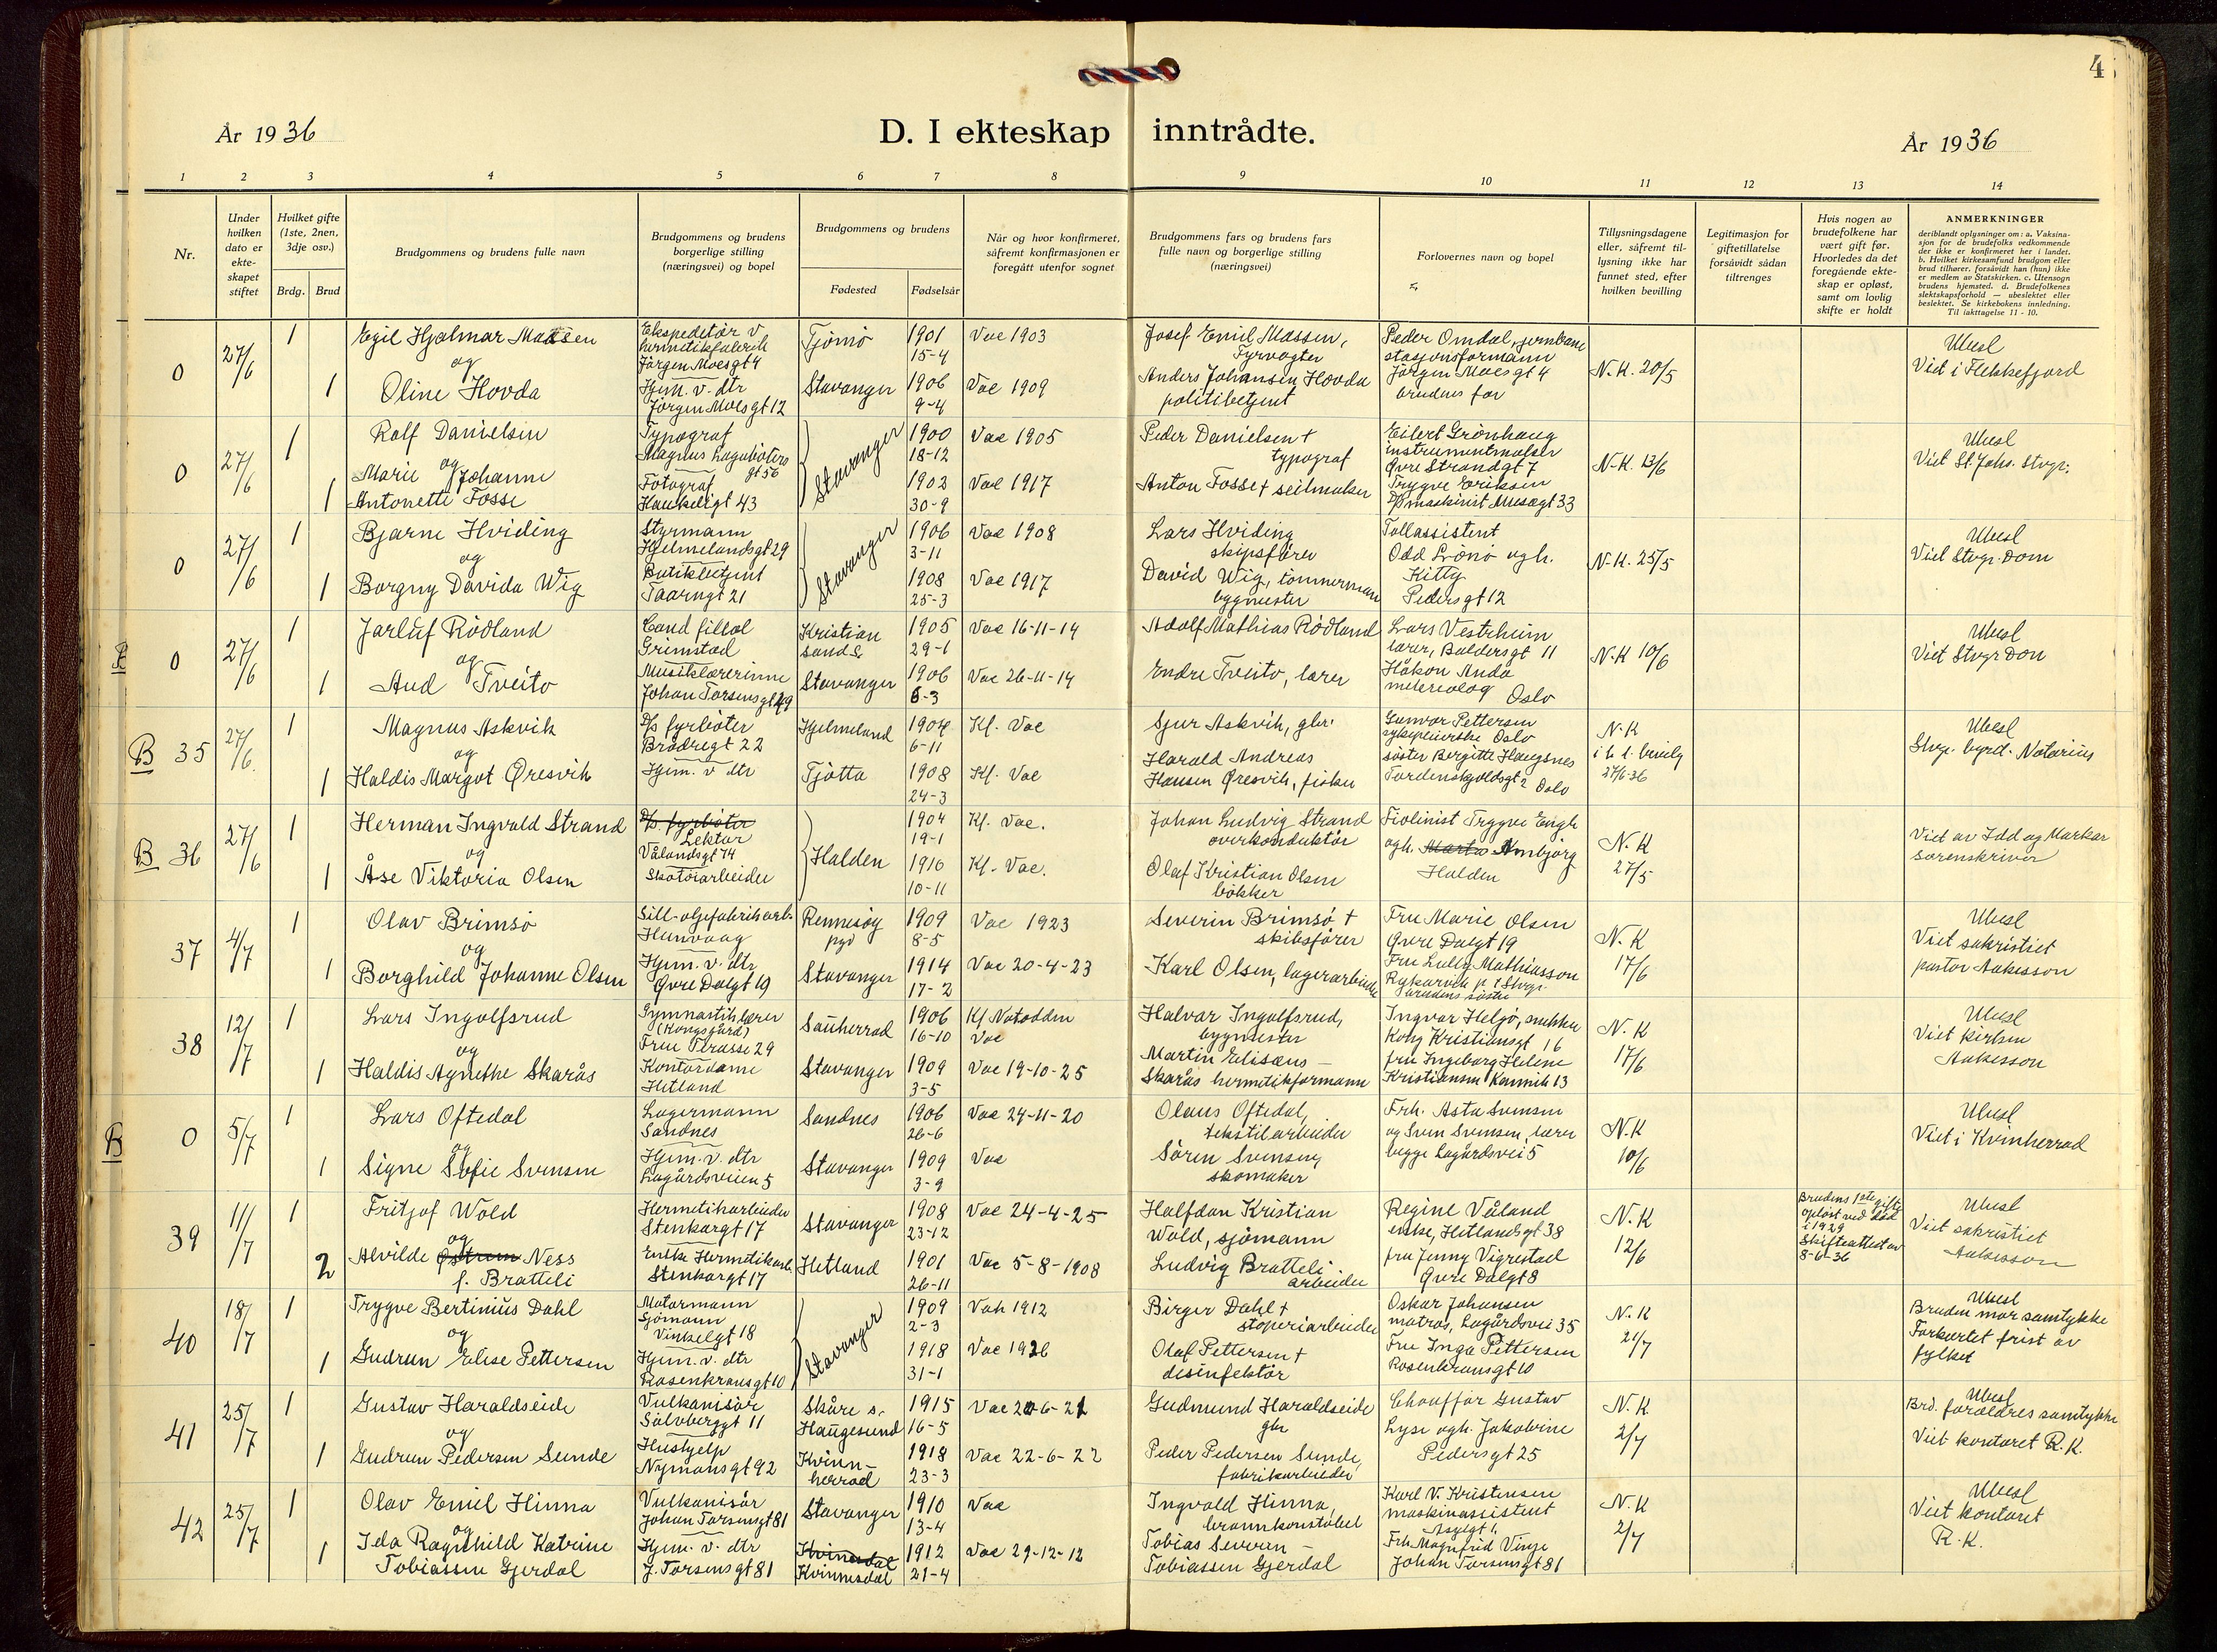 4
År 1936
D. I ekteskap inntrådte.
År 1936
1 2 3 4 5 6 7 8 9 10 11 12 13 14
Nr.
Under hvilken dato er ekte- skapet stiftet
Hvilket gifte (1ste, 2nen, 3dje osv.)
Brdg. Brud
Brudgommens og brudens fulle navn
Brudgommens og brudens borgerlige stilling (næringsvei) og bopel
Brudgommens og brudens
Fødested Fødselsår
Når og hvor konfirmeret, såfremt konfirmasjonen er foregått utenfor sognet
Brudgommens fars og brudens fars fulle navn og borgerlige stilling (næringsvei)
Forlovernes navn og bopel
Tillysningsdagene eller, såfremt til- lysning ikke har funnet sted, efter hvilken bevilling
Legitimasjon for giftetillatelse forsåvidt sådan tiltrenges
Hvis nogen av brudefolkene har vært gift før. Hvorledes da det foregående ekte- skap er opløst, samt om lovlig skifte er holdt
ANMERKNINGER
deriblandt oplysninger om: a. Vaksina-
sjon for de brudefolks vedkommende
der ikke er konfirmeret her i landet.
b. Hvilket kirkesamfund brudgom eller
brud tilhører, forsåvidt han (hun) ikke
er medlem av Statskirken. c. Utensogn
brudens hjemsted. d. Brudefolkenes
slektskapsforhold — ubeslektet eller
beslektet. Se kirkebokens innledning.
Til iakttagelse 11 - 10.
0 27/6 1 Egil Hjalmar Madsen
Ekspeditør v. hermetikfabrik Jörgen Moesgt 4
Tjömö 1901 15-4 Vac 1903
Josef Emil Massen, Fyrvogter
Peder Omdal, jernbane stasjonsformann Jörgen Moesgt 4
N.K. 20/5
Ubesl
Viet i Flekkefjord
og
1 Oline Hovda
Hjem. v. dtr Jörgen Moesgt 12
Stavanger 1906 9-4 Vac 1909
Anders Johansen Hovda politibetjent
brudens far
0 27/6 1 Rolf Danielsen
Typograf Magnus Lagaböters gt 56
Stavanger 1900 18-12 Vac 1905
Peder Danielsen † typograf
Eilert Grönhaug instrumentmaker Øvre Strandgt 7
N.K. 13/6
Ubesl
Viet St. Joh. Stvgr.
og
1 Marie Johanne Antonette Fosse
Fotograf Haukeligt 43
1902 30-9 Vac 1917
Anton Fosse † seilmaker
Trygve Eriksen D/s maskinist Musegt 33
0 27/6 1 Bjarne Hviding
Styrmann Hjelmelandsgt 29
Stavanger 1906 3-11 Vac 1908
Lars Hviding skipsfører
Tollassistent Odd Lönö og h. Kitty Pedersgt 12
N.K. 25/5
Ubesl
Viet Stvgr. Dom
og
1 Borgny Davida Wig
Butikbetjent Taarngt 21
1908 25-3 Vac 1917
David Wig, tömmerman bygmester
B 0 27/6 1 Jarluf Rödland
Cand fillol Grimstad
Kristian sand S. 1905 29-1 Vac 16-11-14
Adolf Mathias Rödland
Lars Vestrheim lærer, Baldersgt 11
N.K 10/6
Ubesl
Viet Stvgr Dom
og
1 Aud Tveito
Musiklærerinne Johan Torsensgt 49
Stavanger 1906 6-3 Vac 26-11-14
Endre Tveito, lærer
Håkon Anda metereolog Oslo
B 35 27/6 1 Magnus Askvik
D/s fyrböter Brödregt 22
Hjelmeland 1904 6-11 Kf. Vac
Sjur Askvik, gbr.
Gunvor Pettersen sykepleierske Oslo
N.K
27/6-36
Ubesl
Stvgr. byrd. Notarius
og
1 Haldis Margot Øresvik
Hjem. v dtr
Tjötta 1908 24-3 Kf. Vac
Harald Andreas Hansen Øresvik, fisker
söster Bergitte Haugsnes Tordenskjoldsgt 2 Oslo
B 36 27/6 1 Herman Ingvald Strand
D/s. fyrböter Lektor Vålandsgt 74
Halden 1904 19-1 Kf. Vac.
Johan Ludvig Strand overkonduktör
Fiolinist Trygve Engh og h. Annbjörg Halden
N.K 27/5
Viet av Idd og Marker sorenskriver
og
1 Åse Viktoria Olsen
Skotöiarbeider
1910 10-11 Kf. Vac.
Olaf Kristian Olsen bökker
37 4/7 1 Olav Brimsö
Sill-oljefabrikarb. Hunvaag
Rennesöy pgd 1909 8-5 Vac 1923
Severin Brimsö † skibsförer
Fru Marie Olsen Øvre Dalgt 19
N.K 17/6
Ubesl
Viet sakristiet pastor Aakesson
og
1 Borghild Johanne Olsen
Hjem. v. dtr Øvre Dalgt 19
Stavanger 1914 17-2 Vac 20-4-23
Karl Olsen, lagerarbeider
Fru Lully Mathiasson brudens söster
38 12/7 1 Lars Ingolfsrud
Gymnastiklærer (Kongsgård) Frue Terasse 29
Sauherrad 1906 16-10 Kf Notodden Vac
Halvar Ingolfsrud, bygmester
Ingvar Heljö, snekker Kong Kristiansgt 16
N.K 17/6
Ubesl
Viet kirken Aakesson
og
1 Haldis Agnethe Skarås
Kontordame Hetland
Stavanger 1909 3-5 Vac 19-10-25
Martin Elisæus – Skarås hermetikformann
fru Ingeborg Helene Kristiansen Kannik 13
B 0 5/7 1 Lars Oftedal
Lagermann Sandnes
Sandnes 1906 26-6 Vac 24-11-20
Olaus Oftedal, tekstilarbeider
Frk. Asta Svensen og Sven Svensen, lærer begge Lagårdsvei 5
N.K 10/6
Ubesl
Viet i Kvinherrad
og
1 Signe Sofie Svensen
Hjem. v. dtr Lagårdsveien 5
Stavanger 1909 3-9 Vac
Sören Svensen, skomaker
39 11/7 1 Fritjof Wold
Hermetikarbeider Stenkargt 17
Stavanger 1908 23-12 Vac 24-4-25
Halfdan Kristian Wold, sjömann
Regine Våland enke, Hetlandsgt 38
N.K 12/6
Brudens 1ste gifte opløst ved död i 1929 Skifteattest av 8-6-36
Ubesl
Viet sakristiet Aakesson
og
2 Alvilde Østrem Ness f. Bratteli
Enke Hermetikarb. Stenkargt 17
Hetland 1901 26-11 Vac 5-8-1908
Ludvig Bratteli arbeider
fru Jenny Vigrestad Øvre Dalgt 8
40 18/7 1 Trygve Bertinius Dahl
Motormann Sjömann Vinkelgt 18
Stavanger 1909 2-3 Vak 1912
Birger Dahl † stoperiarbeider
Oskar Johansen matros, Lagårdsvei 35
N.K 21/7
Ubesl
Bruden mor samtykke
Forkortet frist av fylket
og
1 Gudrun Elise Pettersen
Hjem. v. dtr Rosenkransgt 10
1918 31-1 Vac 1926
Olaf Pettersen † desinfektör
Fru Inga Pettersen Rosenkransgt 10
41 25/7 1 Gustav Haraldseide
Vulkanisör Sölvberggt 11
Skåre s. Haugesund 1915 16-5 Vac 20-6-21
Gudmund Haraldseide gbr
Chauffør Gustav Lyse og h. Jakobine Pedersgt 25
N.K. 2/7
Ubesl
Brd. foreldres samtykke
Viet kontoret R.K.
og
1 Gudrun Pedersen Sunde
Hushjelp Nymansgt 92
Kvinn- herrad 1918 23-3 Vac 22-6-22
Peder Pedersen Sunde, fabrikarbeider
42 25/7 1 Olav Emil Hinna
Vulkanisör Johan Torsensgt 81
Stavanger 1910 13-4 Vac
Ingvald Hinna, brannkonstabel
Karl V. Kristensen maskinassistent
N.K 2/7
Ubesl
Viet kontoret
R.K.
og
1 Ida Ragnhild Katrine Tobiassen Gjerdal
Hjem. v. dtr J. Torsensgt 81
Kvinesdal Kvinnesdal 1912 21-4 Vac 29-12-12
Tobias Severin – Tobiassen Gjerdal
Frk Magnfrid Vinje Johan Torsensgt 81